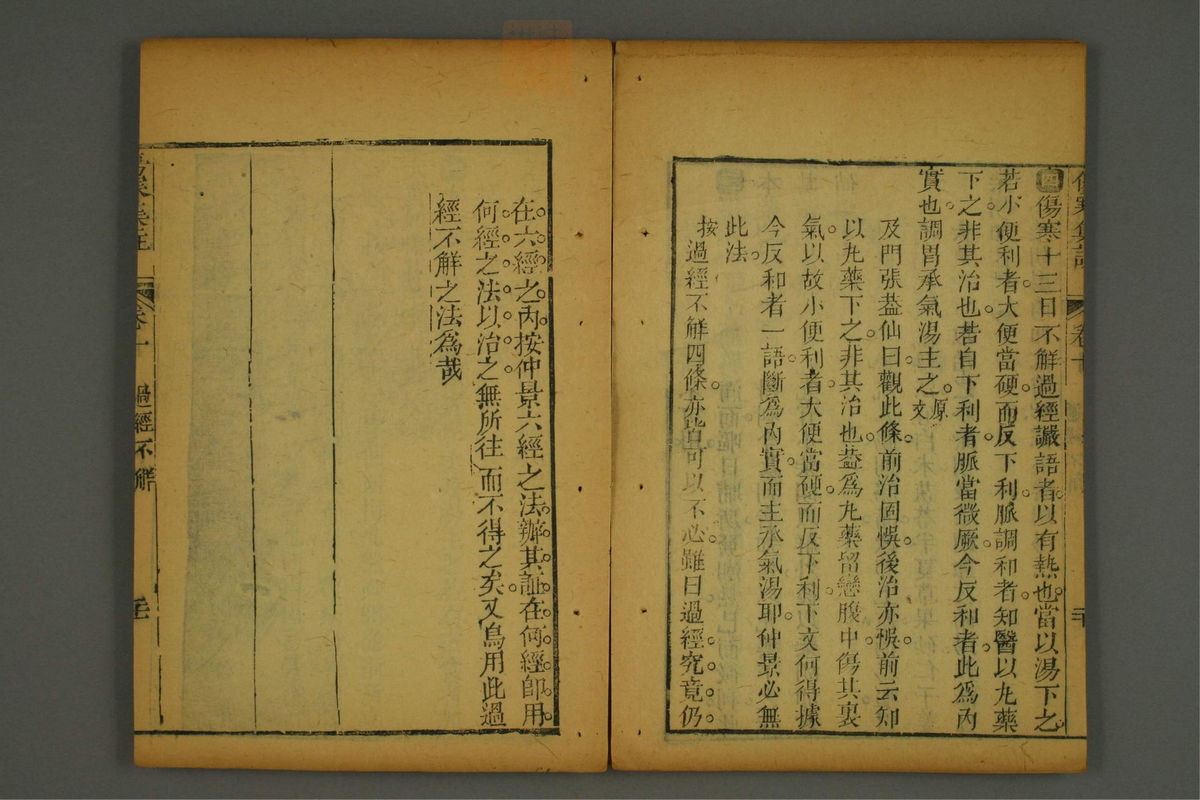 傷寒集註
卷十
二十
四傷寒十三日不解過經讝語者以有熱也當以湯下之
若小便利者大便當硬而反下利脈調和者知醫以丸藥
下之非其治也若自下利者脈當微厥今反和者此爲內
實也調胃承氣湯主之原文
及門張葢仙曰觀此條前治固悞後治亦悞前云知
以丸藥下之非其治也葢爲丸藥留戀腹中傷其裏
氣以故小便利者大便當硬而反下利下文何得據
今反和者一語斷爲內實而主承氣湯耶仲景必無
此法
按過經不解四條亦皆可以不必雖曰過經究竟仍
在六經之內按仲景六經之法辨其証在何經卽用
何經之法以治之無所往而不得之矣又烏用此過
經不解之法爲哉
卷十
過經不解